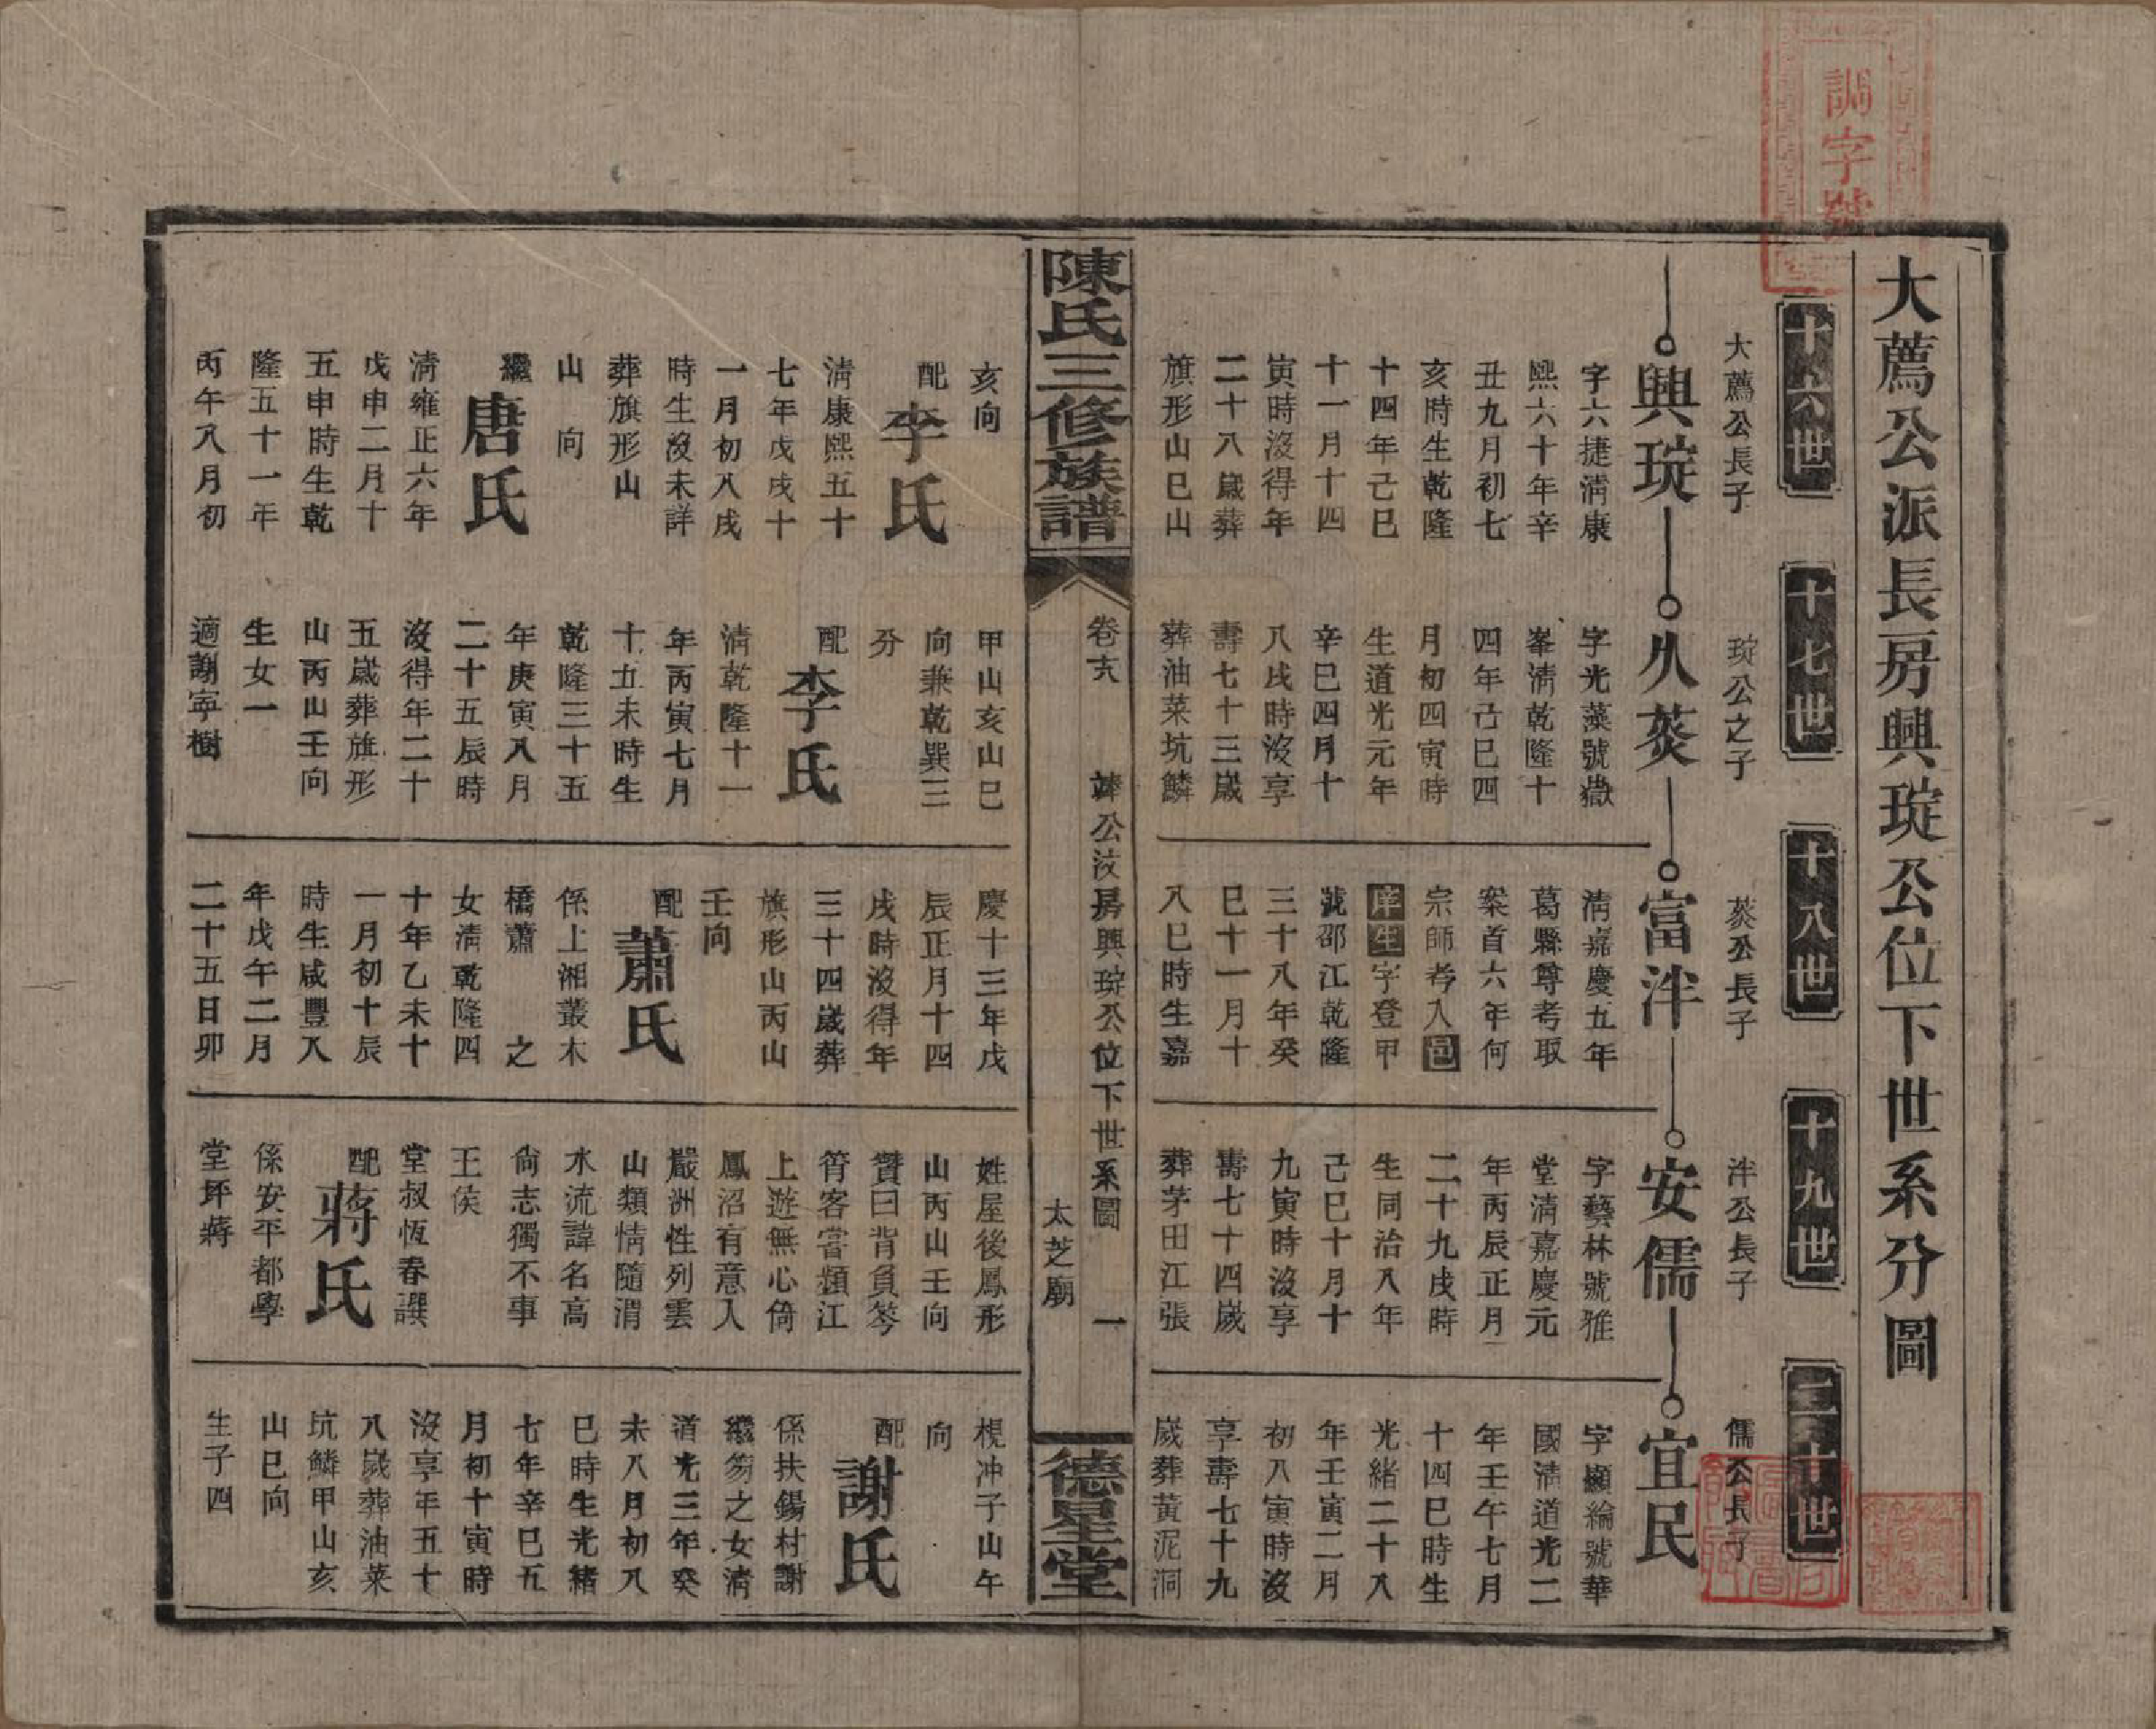 調字號
大薦公派長房興琁公位下世系分圖
十六世
十七世
十八世
十九世
二十世
大薦公長子
興琁
字六捷清康
熙六十年辛
丑九月初七
亥時生乾隆
十四年己巳
十一月十四
寅時沒得年
二十八歲葬
旗形山巳山
亥向
配李氏
清康熙五十
七年戊戌十
一月初八戌
時生沒未詳
葬旗形山
山　向
繼唐氏
清雍正六年
戊申二月十
五申時生乾
隆五十一年
丙午八月初
琁公之子
久荧
字光藻號嶽
峯清乾隆十
四年己巳四
月初四寅時
生道光元年
辛巳四月十
八戌時沒享
壽七十三歲
葬油菜坑鱗
甲山亥山巳
向兼乾巽三
分
配李氏
清乾隆十一
年丙寅七月
十五未時生
乾隆三十五
年庚寅八月
二十五辰時
沒得年二十
五歲葬旗形
山丙山壬向
生女一
適謝寧樹
荧公長子
富泮
清嘉慶五年
葛縣尊考取
案首六年何
宗師考入邑
庠生字登甲
號邵江乾隆
三十八年癸
巳十一月十
八巳時生嘉
慶十三年戊
辰正月十四
戌時沒得年
三十四歲葬
旗形山丙山
壬向
配蕭氏
係上湘叢木
橋蕭　之
女清乾隆四
十年乙未十
一月初十辰
時生咸豐八
年戊午二月
二十五日卯
泮公長子
安儒
字藝林號雅
堂清嘉慶元
年丙辰正月
二十九戌時
生同治八年
己巳十月十
九寅時沒享
壽七十四歲
葬茅田江張
姓屋後鳳形
山丙山壬向
贊曰背負琴
筲客嘗類江
上遊無心倚
鳳沼有意入
嚴洲性列雲
山類情隨渭
水流諱名高
尚志獨不事
王侯
堂叔恆春譔
配蔣氏
係安平都學
堂坪蔣
儒公長子
宜民
字顯綸號華
國清道光二
年壬午七月
十四巳時生
光緒二十八
年壬寅二月
初八寅時沒
享壽七十九
歲葬黃泥洞
梘冲子山午
向
配謝氏
係扶錫村謝
繼芴之女清
道光三年癸
未八月初八
巳時生光緒
七年辛巳五
月初十寅時
沒享年五十
八歲葬油菜
坑鱗甲山亥
山巳向
生子四
陳氏三修族譜
卷十六
公汶房興琁公位下世系圖
太芝廟
一
德星堂